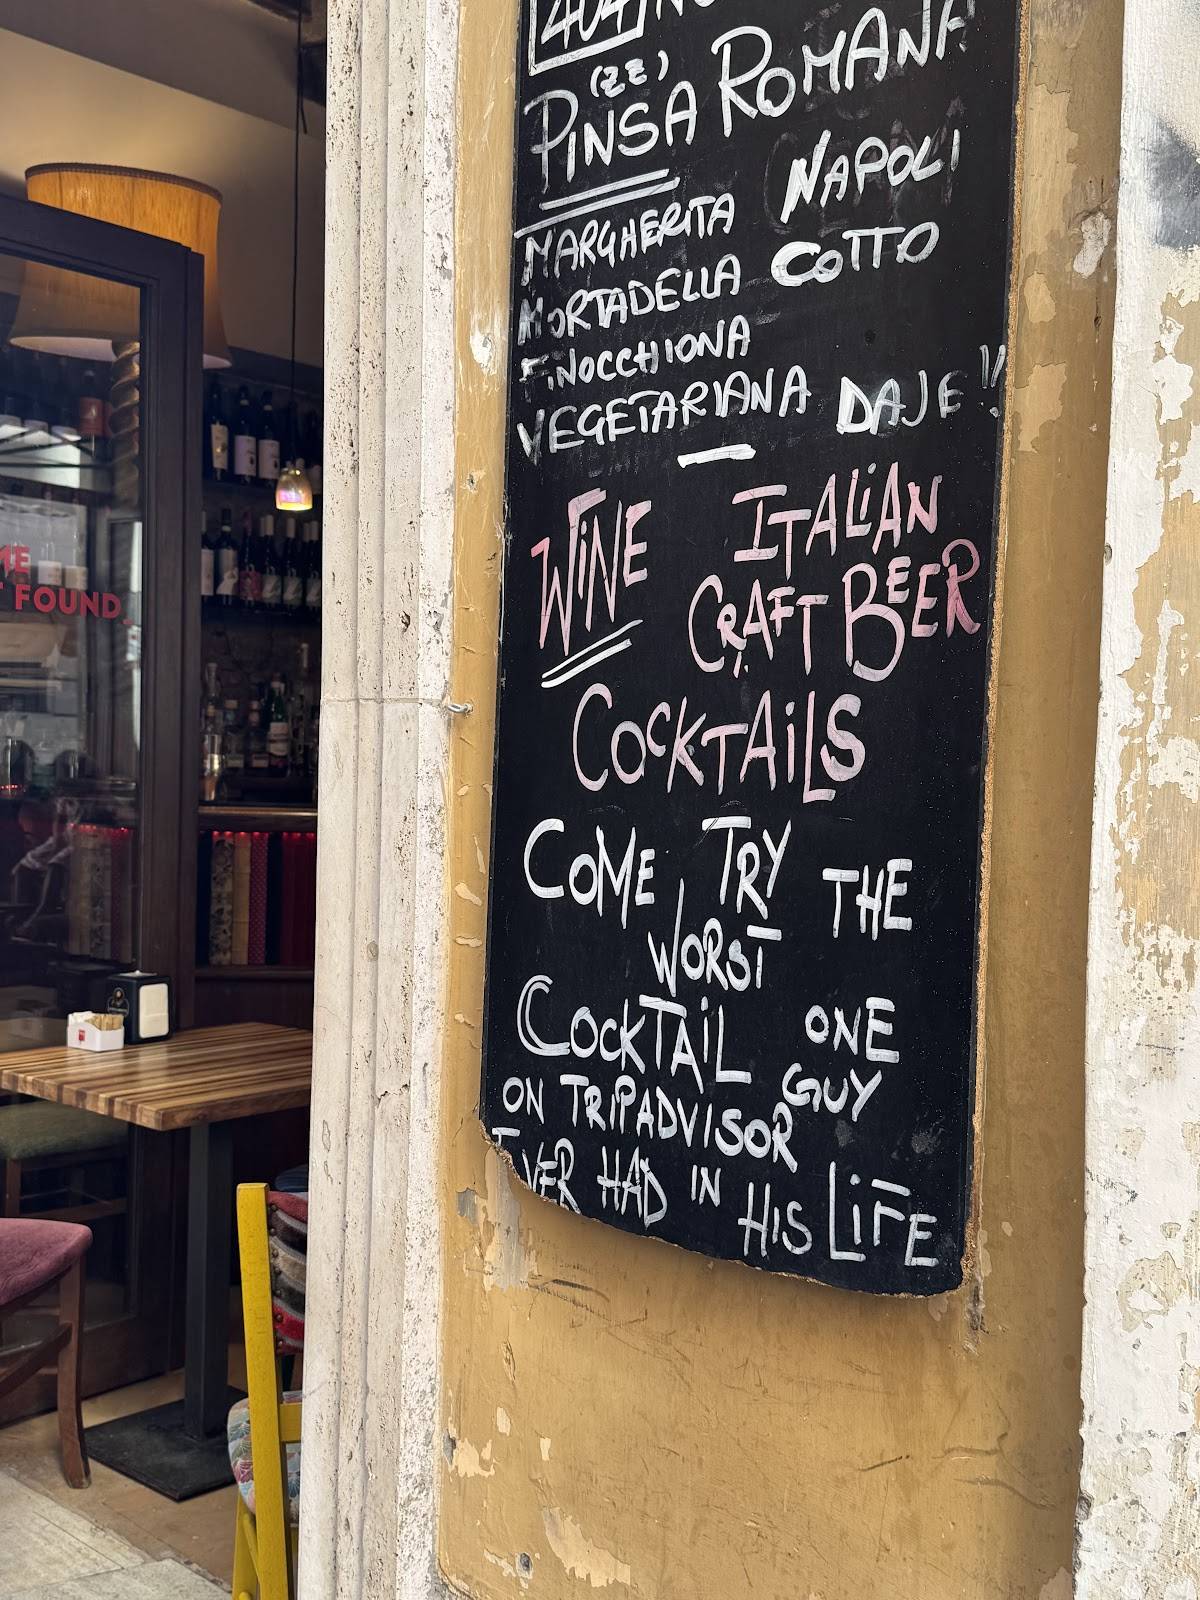 404 NO
(ZZ)
PINSA ROMANA
MARGHERITA NAPOLI
MORTADELLA COTTO
FINOCCHIONA
VEGETARIANA DAJE!!
WINE ITALIAN
CRAFT BEER
COCKTAILS
COME TRY THE
WORST
COCKTAIL ONE
GUY
ON TRIPADVISOR
EVER HAD IN HIS LIFE
ME
T FOUND_